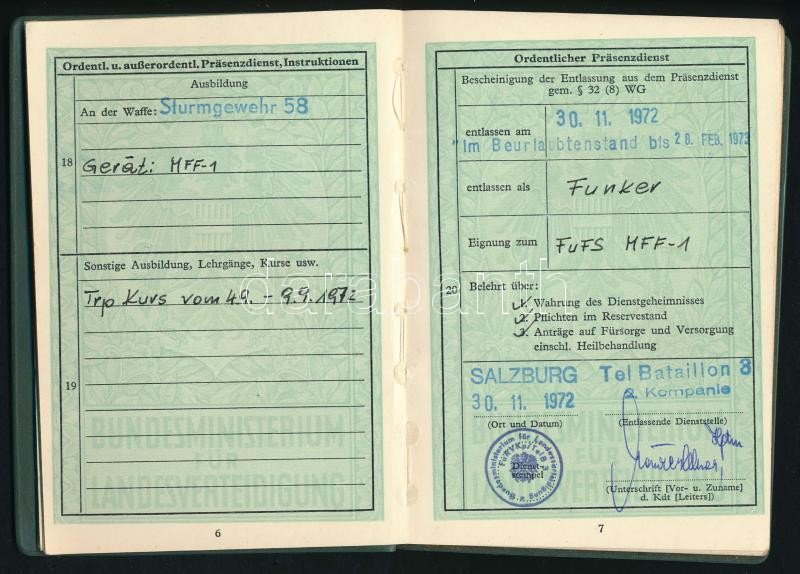 Ordentl. u. außerordentl. Präsenzdienst, Instruktionen
Ausbildung
An der Waffe: Sturmgewehr 58
18
Gerät: MFF-1
Sonstige Ausbildung, Lehrgänge, Kurse usw.
Trp Kurs vom 4.9. - 9.9. 1972
19
BUNDESMINISTERIUM
FÜR
LANDESVERTEIDIGUNG
6
Ordentlicher Präsenzdienst
Bescheinigung der Entlassung aus dem Präsenzdienst
gem. § 32 (8) WG
30. 11. 1972
entlassen am
"im Beurlaubtenstand bis 28. FEB. 1973
entlassen als Funker
Eignung zum FuFS MFF-1
20
Belehrt über:
1. Wahrung des Dienstgeheimnisses
2. Pflichten im Reservestand
3. Anträge auf Fürsorge und Versorgung
einschl. Heilbehandlung
SALZBURG Tel Bataillon 8
30. 11. 1972 2. Kompanie
(Ort und Datum) (Entlassende Dienststelle)
Dienst-
stempel
Hptm
(Unterschrift [Vor- u. Zuname]
d. Kdt [Leiters])
7
darabanth